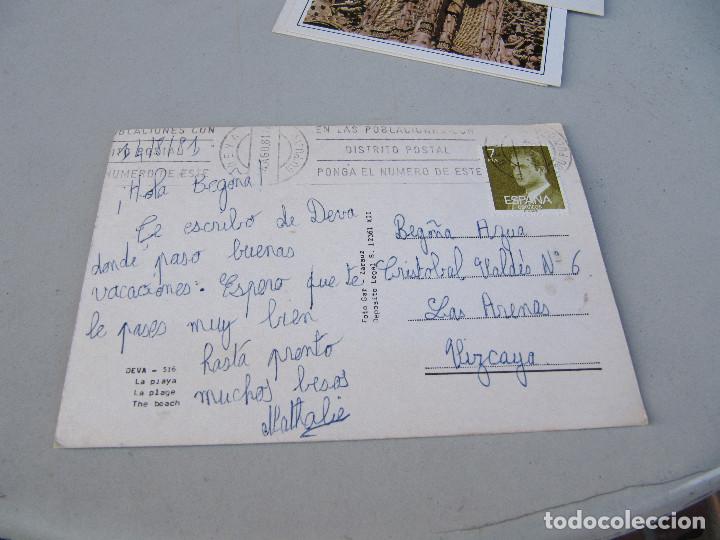 POBLACIONES CON
DISTRITO POSTAL
NUMERO DE ESTE
14/8/81
DEVA
4 AGO.81
EN LAS POBLACIONES CON
DISTRITO POSTAL
PONGA EL NUMERO DE ESTE
ESPAÑA
CORREOS
¡Hola Begoña!
Te escribo de Deva
donde paso buenas
vacaciones. Espero que te
le pases muy bien
hasta pronto
muchos besos
Nathalie
DEVA - 516
La playa
La plage
The beach
Foto Gar - Zarauz
Deposito Legal S. 12361 XII
Begoña Azua
Cristobal Valdés Nº 6.
Las Arenas
Vizcaya.
todocoleccion